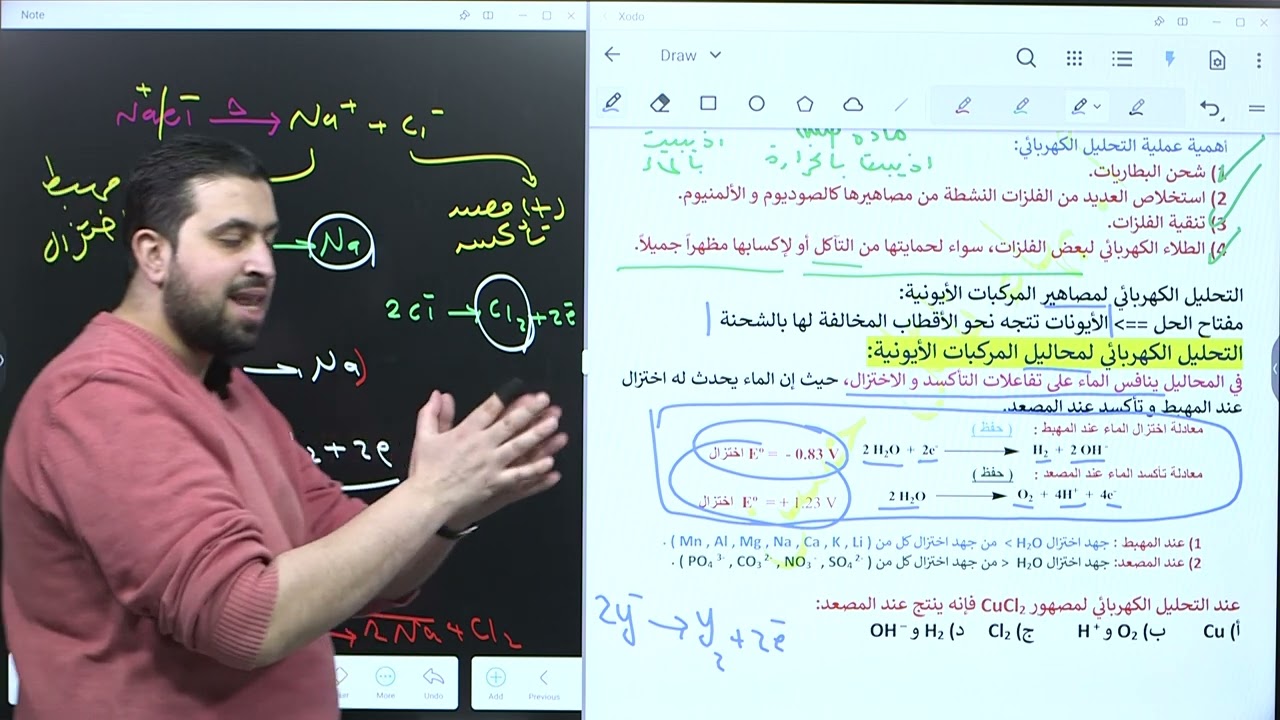 Note
Na⁺/Cl⁻ —Δ→ Na⁺ + Cl⁻
مهبط
اختزال
(+) مصعد
تأكسد
→ Na
2Cl⁻ → Cl₂ + 2e⁻
→ Na
+ 2e
→ 2Na + Cl₂
More
Undo
Add
Previous
Xodo
Draw
أذيبت بالحرارة
أذيبت بالماء
أهمية عملية التحليل الكهربائي:
1) شحن البطاريات.
2) استخلاص العديد من الفلزات النشطة من مصاهيرها كالصوديوم و الألمنيوم.
3) تنقية الفلزات.
4) الطلاء الكهربائي لبعض الفلزات، سواء لحمايتها من التآكل أو لإكسابها مظهراً جميلاً.
التحليل الكهربائي لمصاهير المركبات الأيونية:
مفتاح الحل ==> الأيونات تتجه نحو الأقطاب المخالفة لها بالشحنة
التحليل الكهربائي لمحاليل المركبات الأيونية:
في المحاليل ينافس الماء على تفاعلات التأكسد و الاختزال، حيث إن الماء يحدث له اختزال
عند المهبط و تأكسد عند المصعد.
معادلة اختزال الماء عند المهبط : ( حفظ )
2 H₂O + 2e⁻ → H₂ + 2 OH⁻ اختزال E° = - 0.83 V
معادلة تأكسد الماء عند المصعد : ( حفظ )
2 H₂O → O₂ + 4H⁺ + 4e⁻ اختزال E° = + 1.23 V
1) عند المهبط : جهد اختزال H₂O > من جهد اختزال كل من ( Mn , Al , Mg , Na , Ca , K , Li ) .
2) عند المصعد: جهد اختزال H₂O < من جهد اختزال كل من ( PO₄³⁻ , CO₃²⁻ , NO₃⁻ , SO₄²⁻ ) .
عند التحليل الكهربائي لمصهور CuCl₂ فإنه ينتج عند المصعد:
أ) Cu ب) O₂ و H⁺ ج) Cl₂ د) H₂ و OH⁻
2y⁻ → y₂ + 2e⁻